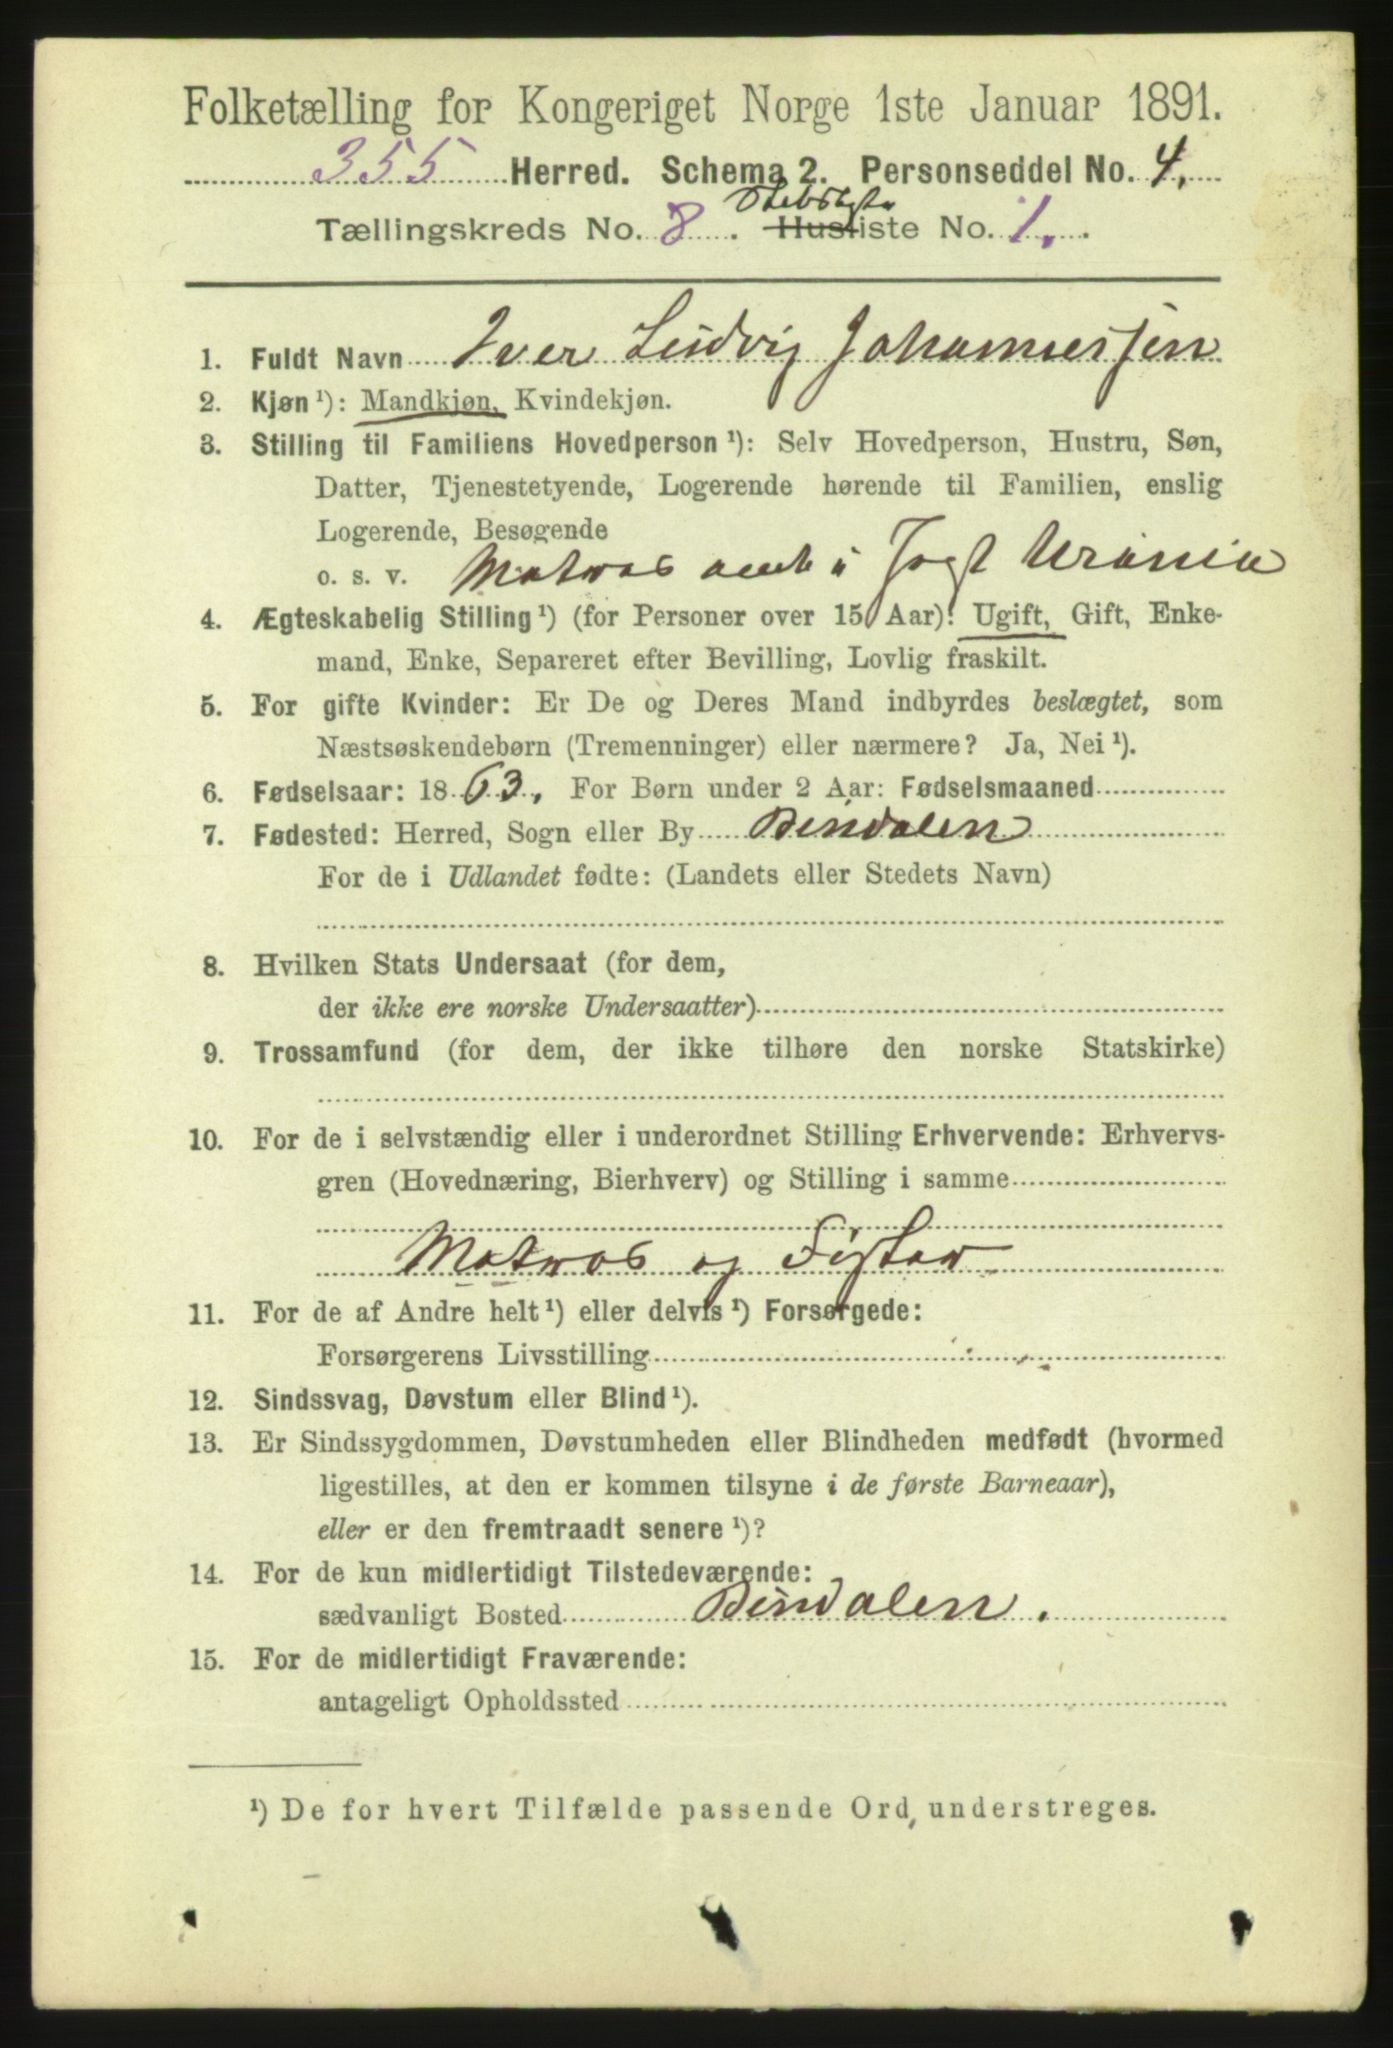 Folketælling for Kongeriget Norge 1ste Januar 1891.
355 Herred. Schema 2. Personseddel No. 4.
Skibsliste
Tællingskreds No. 8. Husliste No. 1.
1. Fuldt Navn Iver Ludvig Johannessen
2. Kjøn ¹): Mandkjøn, Kvindekjøn.
3. Stilling til Familiens Hovedperson ¹): Selv Hovedperson, Hustru, Søn,
Datter, Tjenestetyende, Logerende hørende til Familien, enslig
Logerende, Besøgende
o. s. v. Matros Jagt Urania
4. Ægteskabelig Stilling ¹) (for Personer over 15 Aar): Ugift, Gift, Enke-
mand, Enke, Separeret efter Bevilling, Lovlig fraskilt.
5. For gifte Kvinder: Er De og Deres Mand indbyrdes beslægtet, som
Næstsøskendebørn (Tremenninger) eller nærmere? Ja, Nei ¹).
6. Fødselsaar: 1863. For Børn under 2 Aar: Fødselsmaaned
7. Fødested: Herred, Sogn eller By Bindalen
For de i Udlandet fødte: (Landets eller Stedets Navn)
8. Hvilken Stats Undersaat (for dem,
der ikke ere norske Undersaatter)
9. Trossamfund (for dem, der ikke tilhøre den norske Statskirke)
10. For de i selvstændig eller i underordnet Stilling Erhvervende: Erhvervs-
gren (Hovednæring, Bierhverv) og Stilling i samme
Matros og Fisker
11. For de af Andre helt ¹) eller delvis ¹) Forsørgede:
Forsørgerens Livsstilling
12. Sindssvag, Døvstum eller Blind ¹).
13. Er Sindssygdommen, Døvstumheden eller Blindheden medfødt (hvormed
ligestilles, at den er kommen tilsyne i de første Barneaar),
eller er den fremtraadt senere ¹)?
14. For de kun midlertidigt Tilstedeværende:
sædvanligt Bosted Bindalen.
15. For de midlertidigt Fraværende:
antageligt Opholdssted
¹) De for hvert Tilfælde passende Ord understreges.